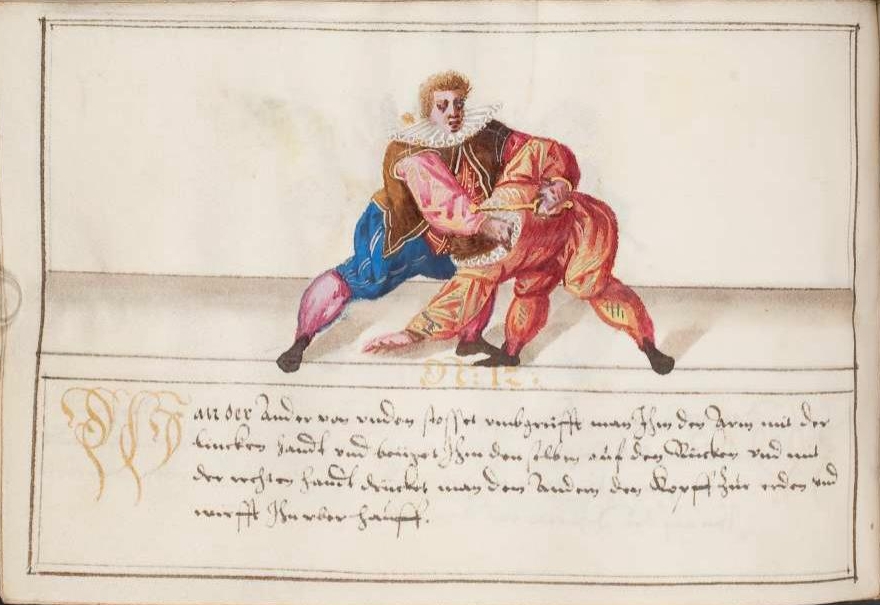 N: 12:
Wan der Ander von vnden stosset vmbgreifft man Ihm den Arm mit der
lincken handt vnd beuget Ihm den selben auf den Rücken vnd mit
der rechten handt drucket man dem Andern den Kopff zur erden vnd
wirfft Ihn vber hauff.